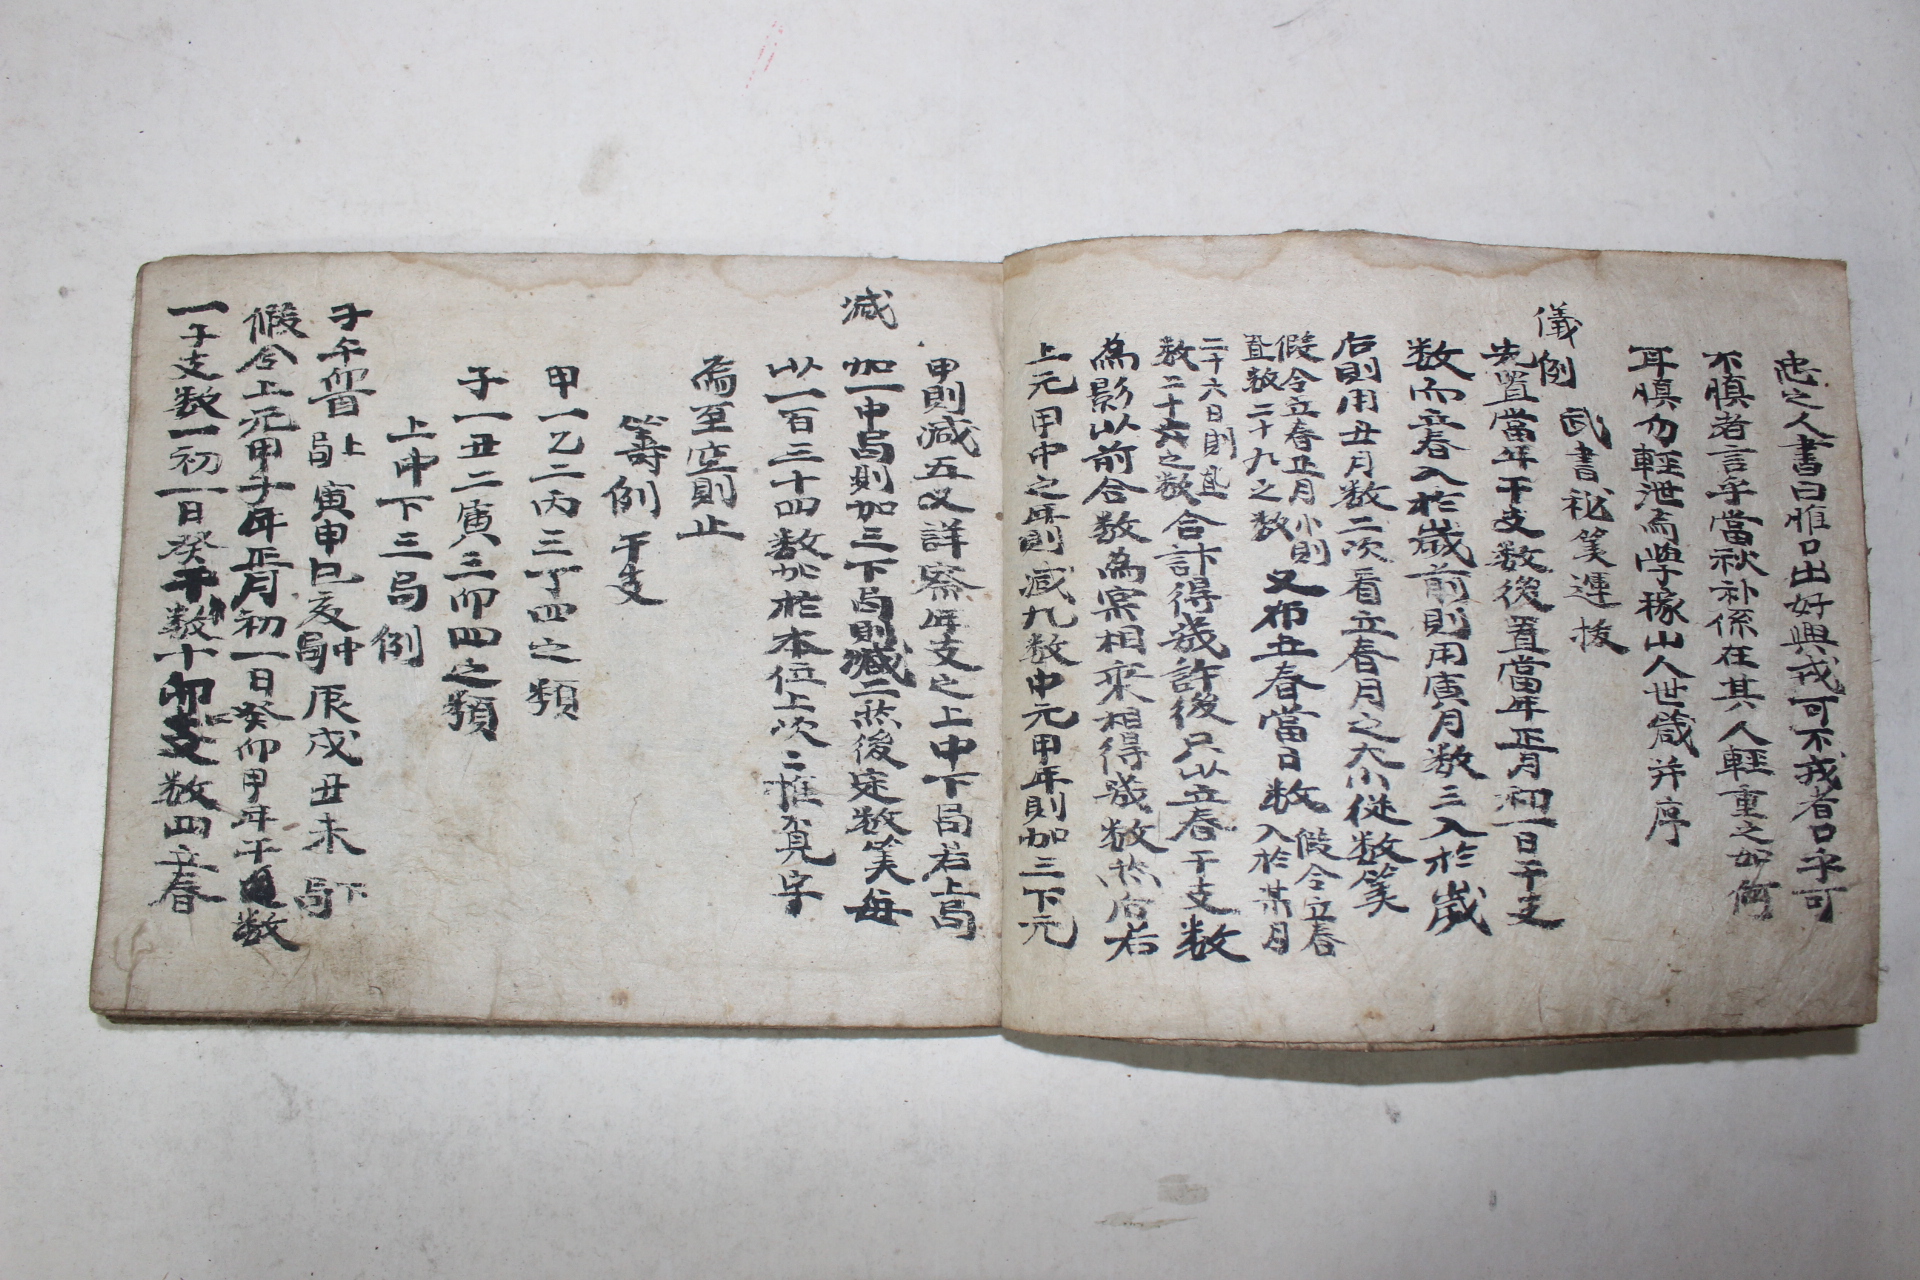 忠之人書曰惟口出好興戎可不戒者口乎可
不愼者言乎當秋補係在其人輕重之如何
耳愼勿輕泄而學稼山人世箴并序
儀例
武書秘筭運授
先置當年干支数後置當年正月初一日干支
数而立春入於歲前則用寅月数三入於歲
后則用丑月数二次看立春月之大小從数筭
假令立春正月小則
置数二十九之数
又布立春當日数
假令立春
入於某月
二十六日則置
数二十六之数
合計得幾許後只以立春干支数
為影以前合数為宲相乘相得幾数然后若
上元甲申之年則减九数中元甲年則加三下元
减
甲則减五又詳察年支之上中下局若上局
加一中局則加三下局則减二然後定数筭每
以一百三十四数加於本位上次二推覔字
而至空則止
籌例 干支
甲一乙二丙三丁四之類
子一丑二寅三卯四之類
上中下三局例
子午卯酉 上局 寅申巳亥 中局 辰戌丑未 下局
假令上元甲子年正月初一日癸卯甲年干数
一子支数一初一日癸干数十卯支数四立春